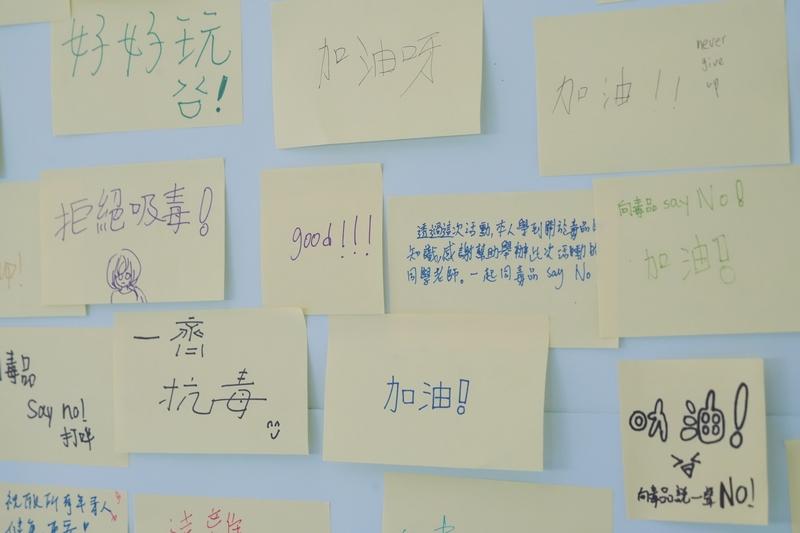 好好玩
!
加油呀
加油!!
never
give
up
拒絕吸毒!
good!!!
透過這次活動,本人學到關於毒品
知識,感謝幫助舉辦此次活動
同學老師。一起向毒品 say No
向毒品 say No!
加油!!
up!
毒品
Say no!
打咩
一齊
抗毒
加油!
加油!
向毒品說一聲 NO!
祝所有年青人